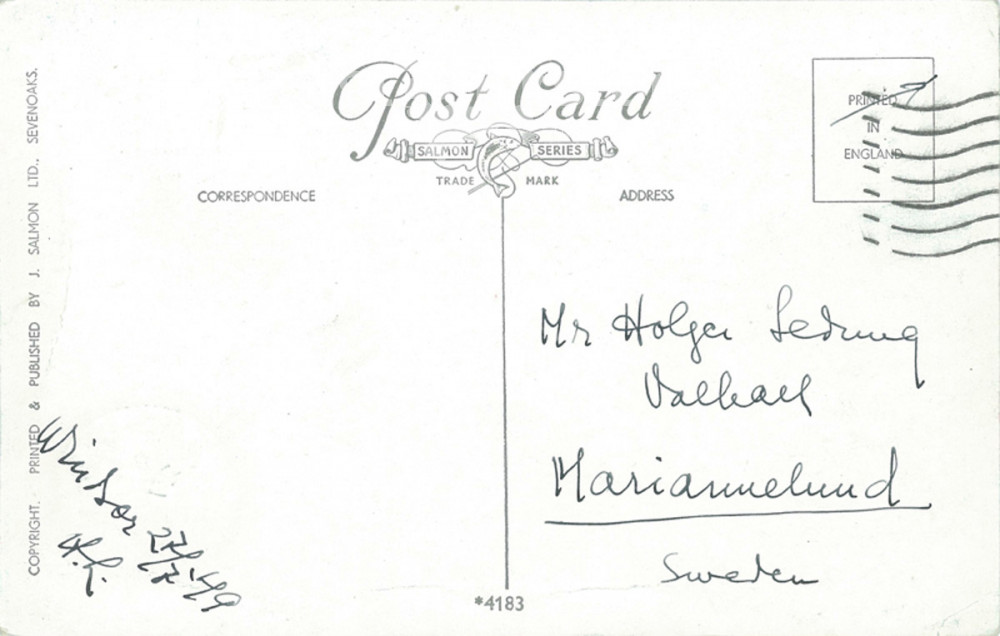 Post Card
SALMON SERIES
TRADE MARK
CORRESPONDENCE
ADDRESS
PRINTED
IN
ENGLAND
COPYRIGHT. PRINTED & PUBLISHED BY J. SALMON LTD., SEVENOAKS.
Mr Holger Sedung
Valhall
Mariannelund
Sweden
Windsor 27/7 '49
*4183